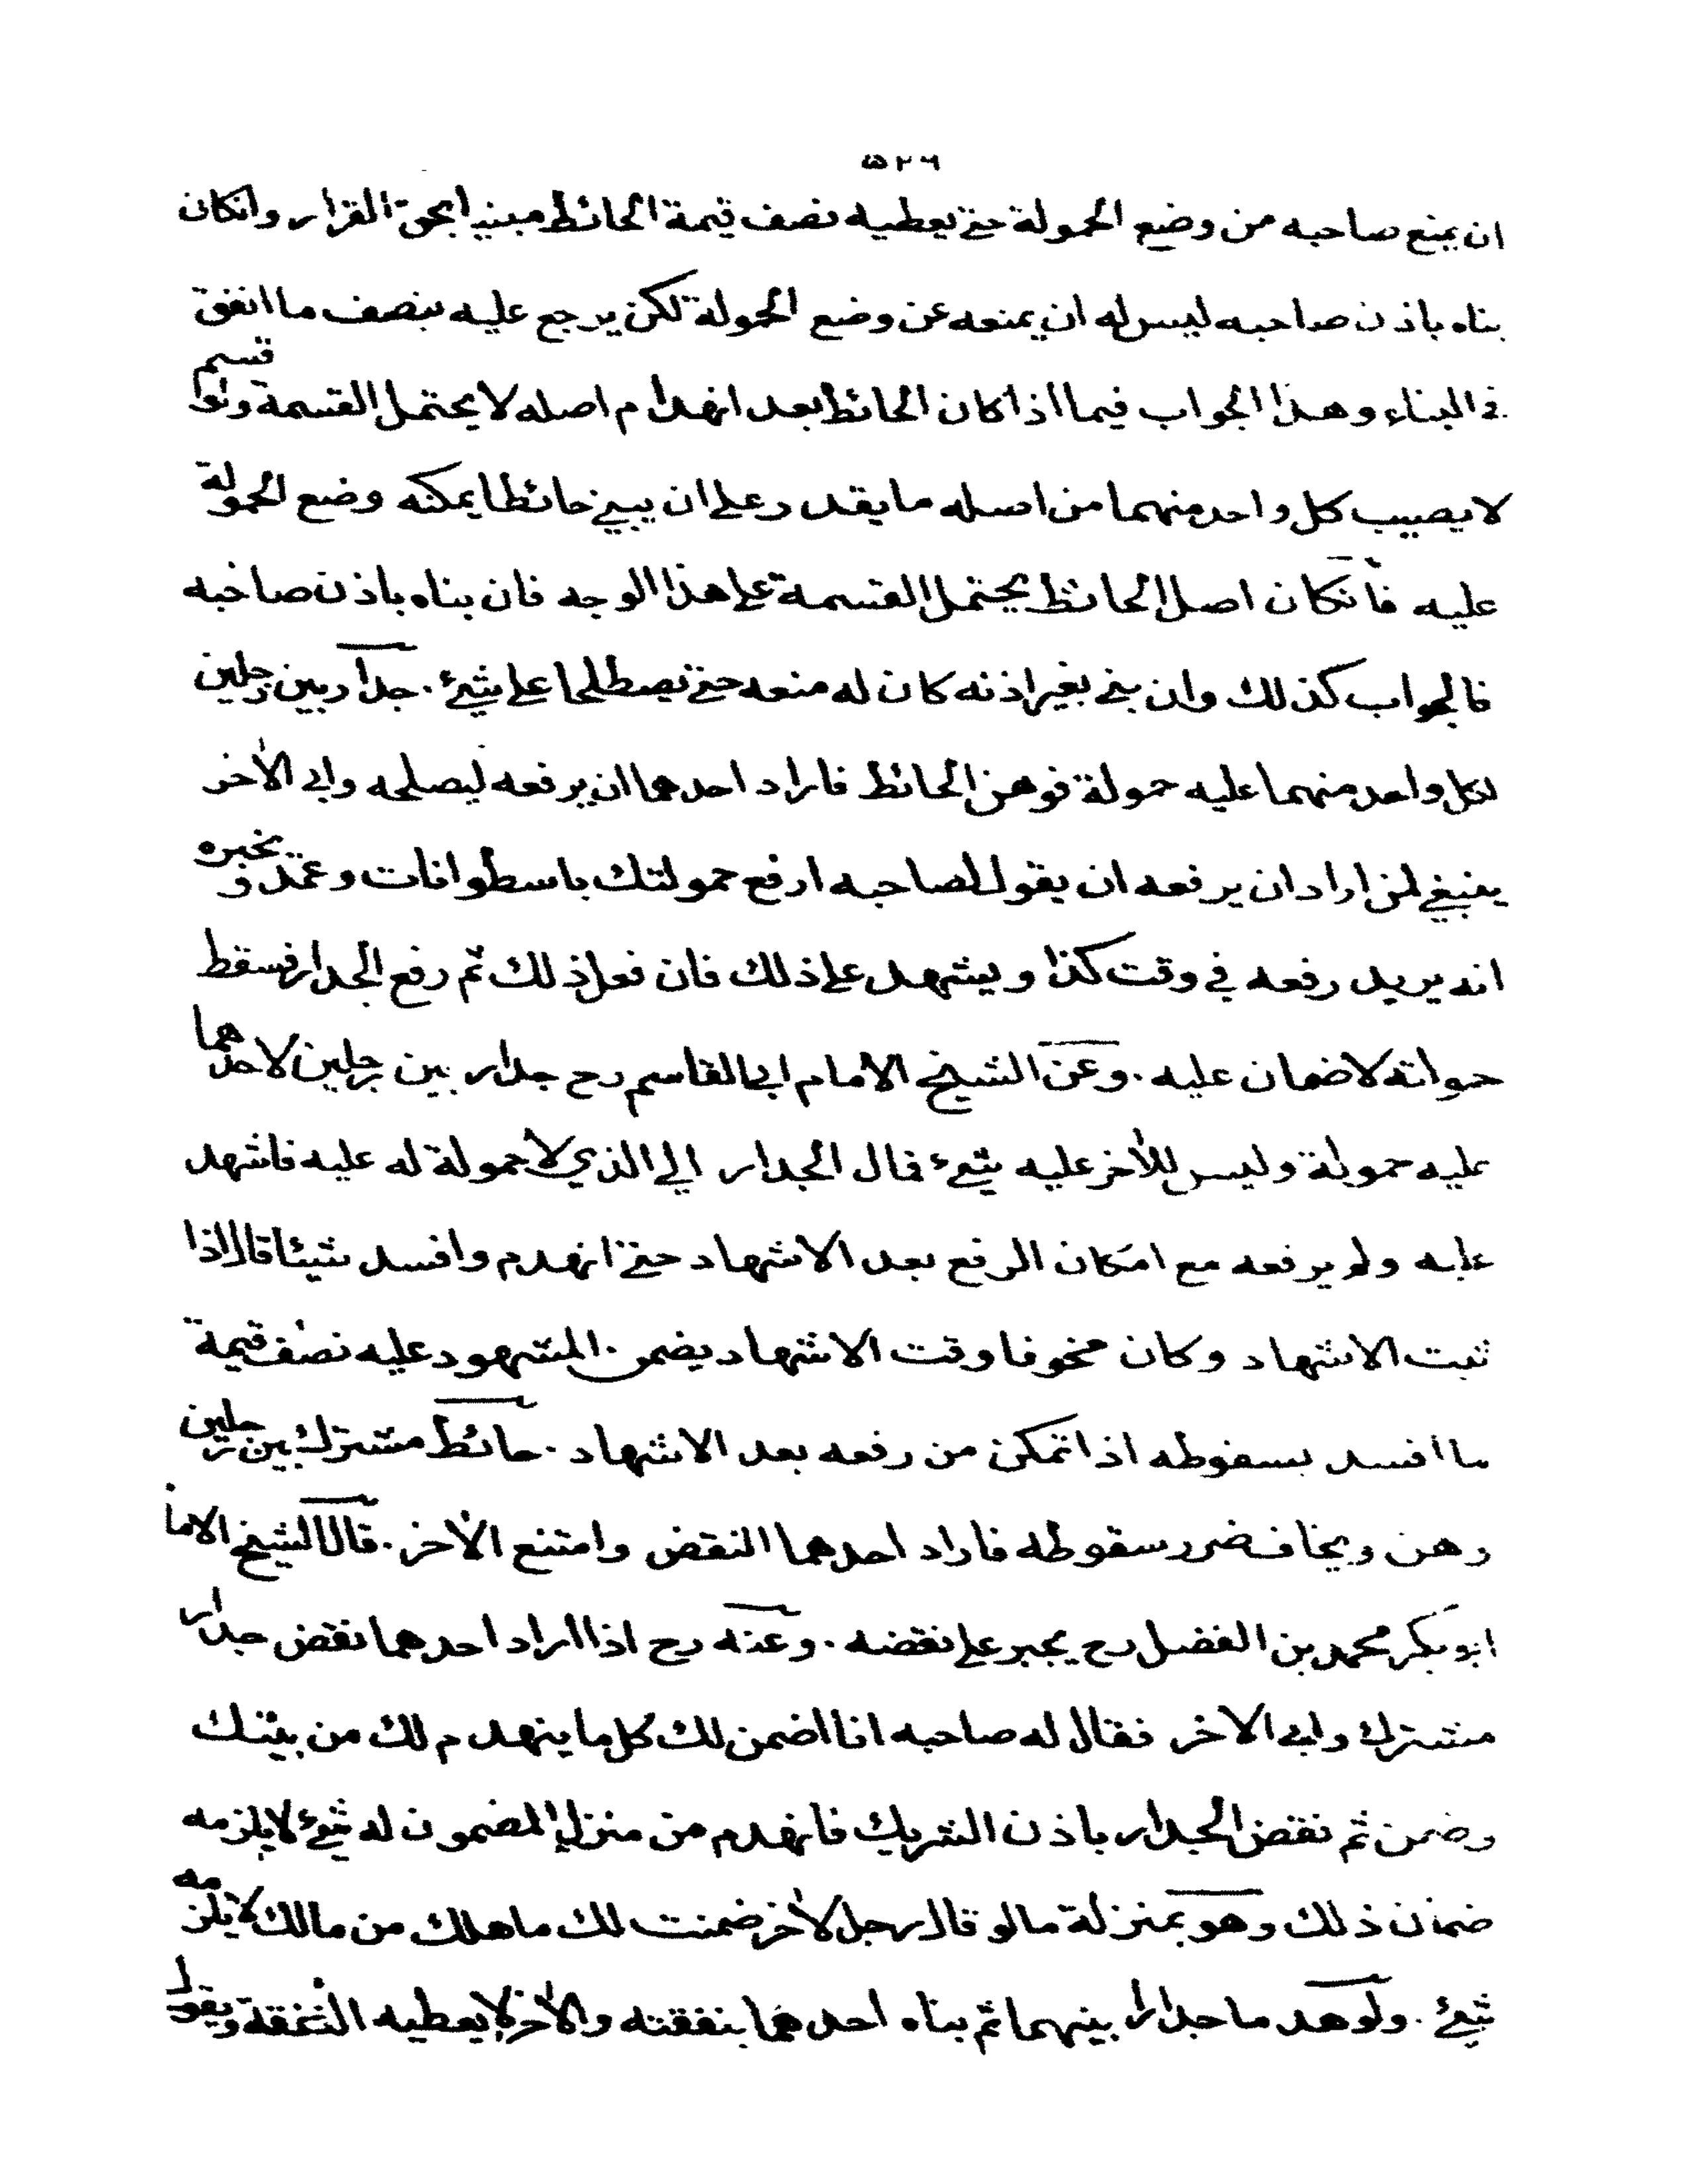 ٥٢٦
ان يمنع صاحبه من وضع الحمولة حتى يعطيه نصف قيمة الحائط مبنيا بحق القرار وانكان
بناه باذن صاحبه ليس له ان يمنعه عن وضع الحمولة لكن يرجع عليه بنصف ما انفق
في البناء وهذا الجواب فيما اذا كان الحائط بعد انهدام اصله لا يحتمل القسمة ولو قسم
لا يصيب كل واحد منهما من اصله ما يقدر على ان يبني حائطا يمكنه وضع الحمولة
عليه فانكان اصل الحائط يحتمل القسمة على هذا الوجه فان بناه باذن صاحبه
فالجواب كذلك وان بنى بغير اذنه كان له منعه حتى يصطلحا على شيء . جدار بين رجلين
لكل واحد منهما عليه حمولة فوهن الحائط فاراد احدهما ان يرفعه ليصلحه وابى الآخر
ينبغي لمن اراد ان يرفعه ان يقول لصاحبه ارفع حمولتك باسطوانات وعمد ويخبره
انه يريد رفعه في وقت كذا ويشهد على ذلك فان فعل ذلك ثم رفع الجدار فسقط
حمولته لا ضمان عليه . وعن الشيخ الامام ابي القاسم رح جدار بين رجلين لاحدهما
عليه حمولة وليس للآخر عليه شيء فمال الجدار الى الذي لا حمولة له عليه فاشهد
عليه ولم يرفعه مع امكان الرفع بعد الاشهاد حتى انهدم وافسد شيئا قال اذا
ثبت الاشهاد وكان مخوفا وقت الاشهاد يضمن المشهود عليه نصف قيمة
ما افسد بسقوطه اذا تمكن من رفعه بعد الاشهاد . حائط مشترك بين رجلين
وهن ويخاف ضرر سقوطه فاراد احدهما النقض وامتنع الآخر . قال الشيخ الامام
ابو بكر محمد بن الفضل رح يجبر على نقضه . وعنه رح اذا اراد احدهما نقض جدار
مشترك وابى الاخر فقال له صاحبه انا اضمن لك كل ما ينهدم لك من بيتك
وضمن ثم نقض الجدار باذن الشريك فانهدم من منزل المضمون له شيء لا يلزمه
ضمان ذلك وهو بمنزلة ما لو قال رجل لآخر ضمنت لك ما هلك من مالك لا يلزمه
شيء . ولو هدما جدارا بينهما ثم بناه احدهما بنفقته والآخر لا يعطيه النفقة ويقول